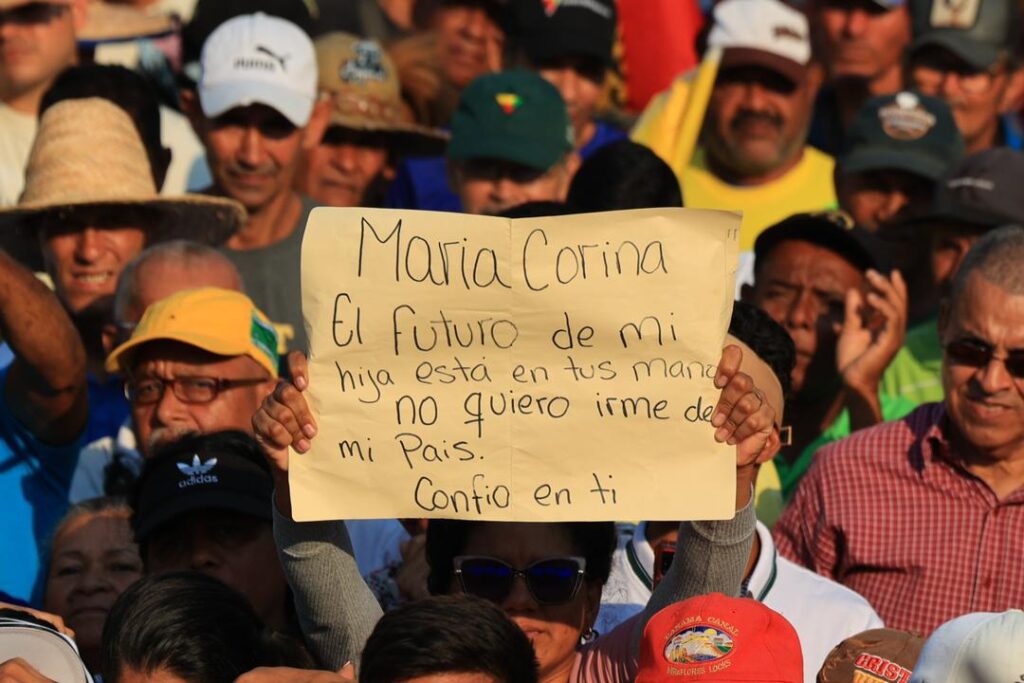 Maria Corina
El futuro de mi
hija está en tus mano
no quiero irme de
mi Pais.
Confio en ti
PUMA
adidas
PANAMA CANAL
MIRAFLORES LOCKS